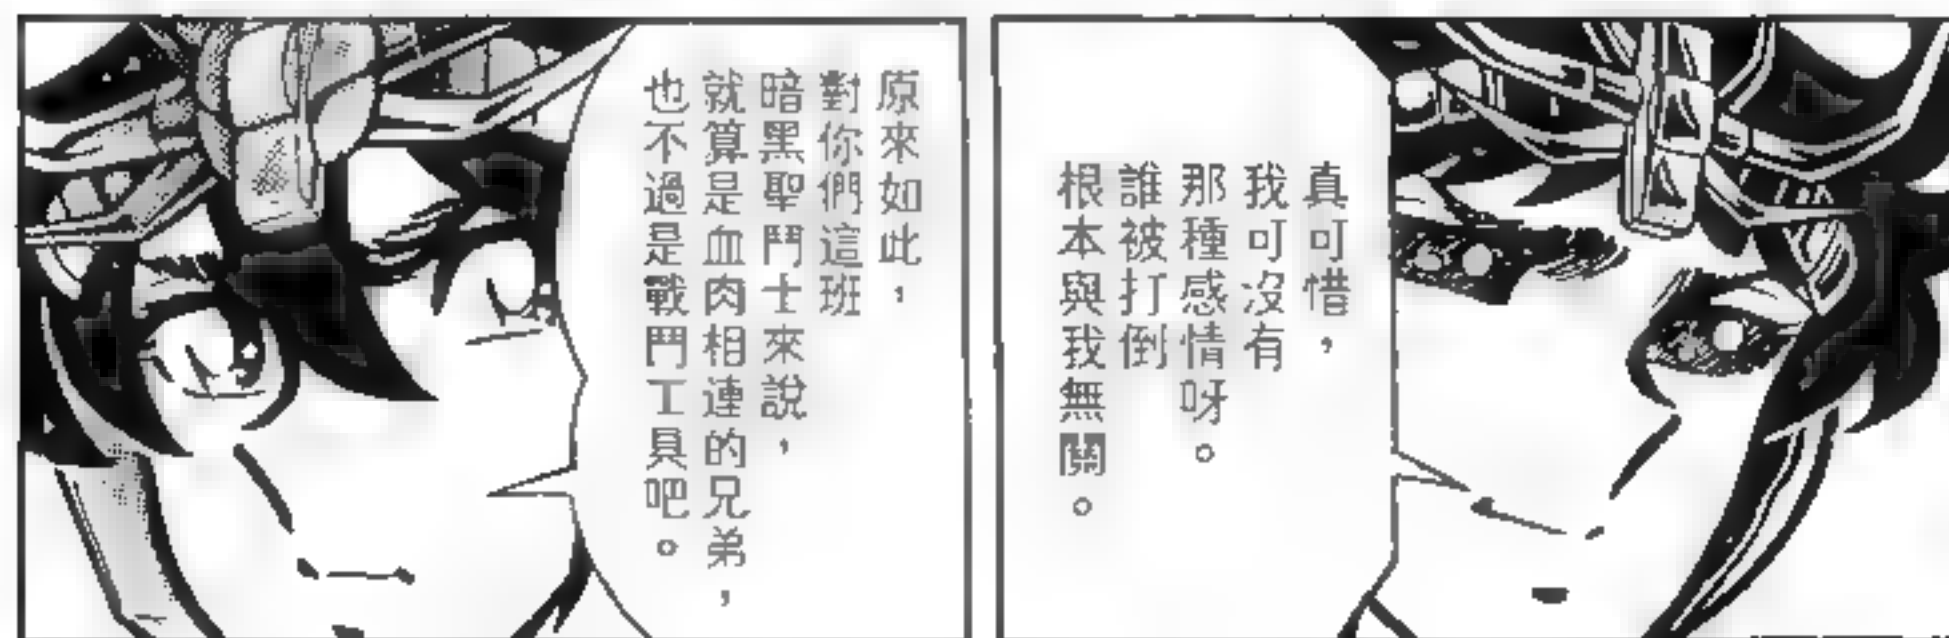 真可惜，
我可沒有
那種感情呀。
誰被打倒
根本與我無關。
原來如此，
對你們這班
暗黑聖鬥士來說，
就算是血肉相連的兄弟，
也不過是戰鬥工具吧。